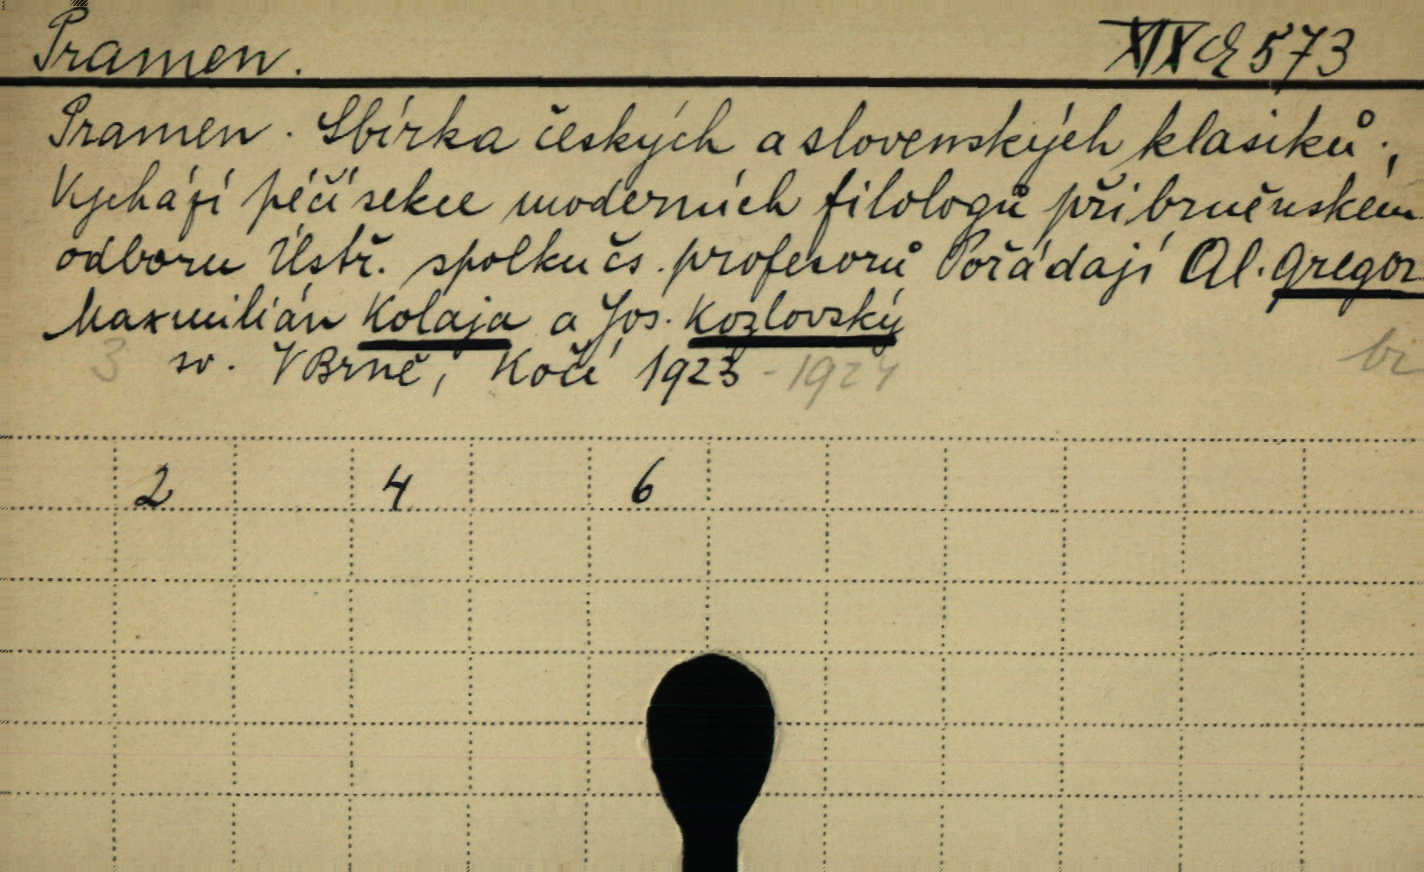 Pramen. XIX E 573
Pramen. Sbírka českých a slovenských klasiků.,
Vychází péčí sekce moderních filologů při brněnském
odboru Ústř. spolku čs. profesorů Pořádají Al. Gregor
Maxmilián Kolaja a Jos. Kozlovský
3 sv. V Brně, Kočí 1923-1924 bi
2 4 6